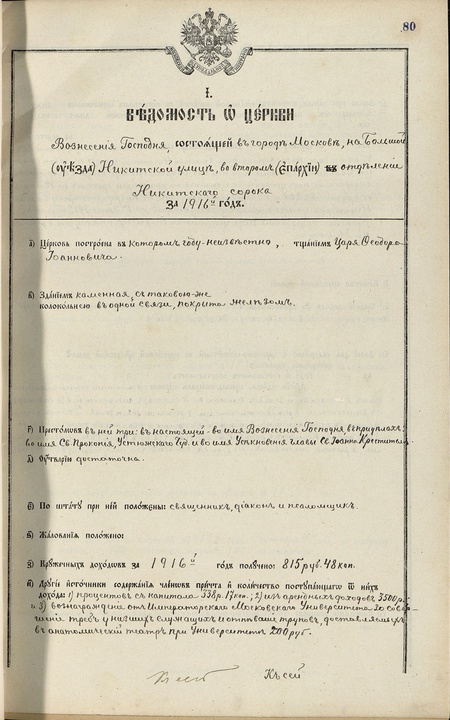 80
I.
ВѢДОМОСТЬ Ѿ ЦЕРКВИ
Вознесенія Господня, состоящей въ городѣ Москвѣ, на Большой
(оуѣзда) Никитской улицѣ, во второмъ (Єпархіи) въ отдѣленіи
Никитскаго сорока
за 1916й годъ.
а) Церковь построена въ которомъ году-неизвѣстно, тщаніемъ Царя Ѳеодора
Іоанновича.
в) Зданіемъ каменная, съ таковою-же
колокольнею въ одной связи, покрыта желѣзомъ.
г) Престоловъ въ ней три: въ настоящей - во имя Вознесенія Господня, въ придѣлахъ:
во имя Св. Прокопія, Устюжскаго Чуд. и во имя Усѣкновенія главы Св. Іоанна Крестителя.
д) Оутварію достаточна.
е) По штату при ней положены: священникъ, діаконъ и псаломщикъ.
ѕ) Жалованія положено:
з) Кружечныхъ доходовъ за 1916й годъ получено: 815 руб. 48 коп.
и) Другіе источники содержанія членовъ причта и количество поступающаго ѿ нихъ
дохода: 1) процентовъ съ капитала 338 р. 17 коп.; 2) изъ арендныхъ доходовъ 3500 р.
и 3) вознагражденія отъ Императорскаго Московскаго Университета за совер-
шеніе требъ у низшихъ служащихъ и отпѣваніе труповъ, доставляемыхъ
въ анатомическій театръ при Университетѣ 200 руб.
Къ сей
Къ сей